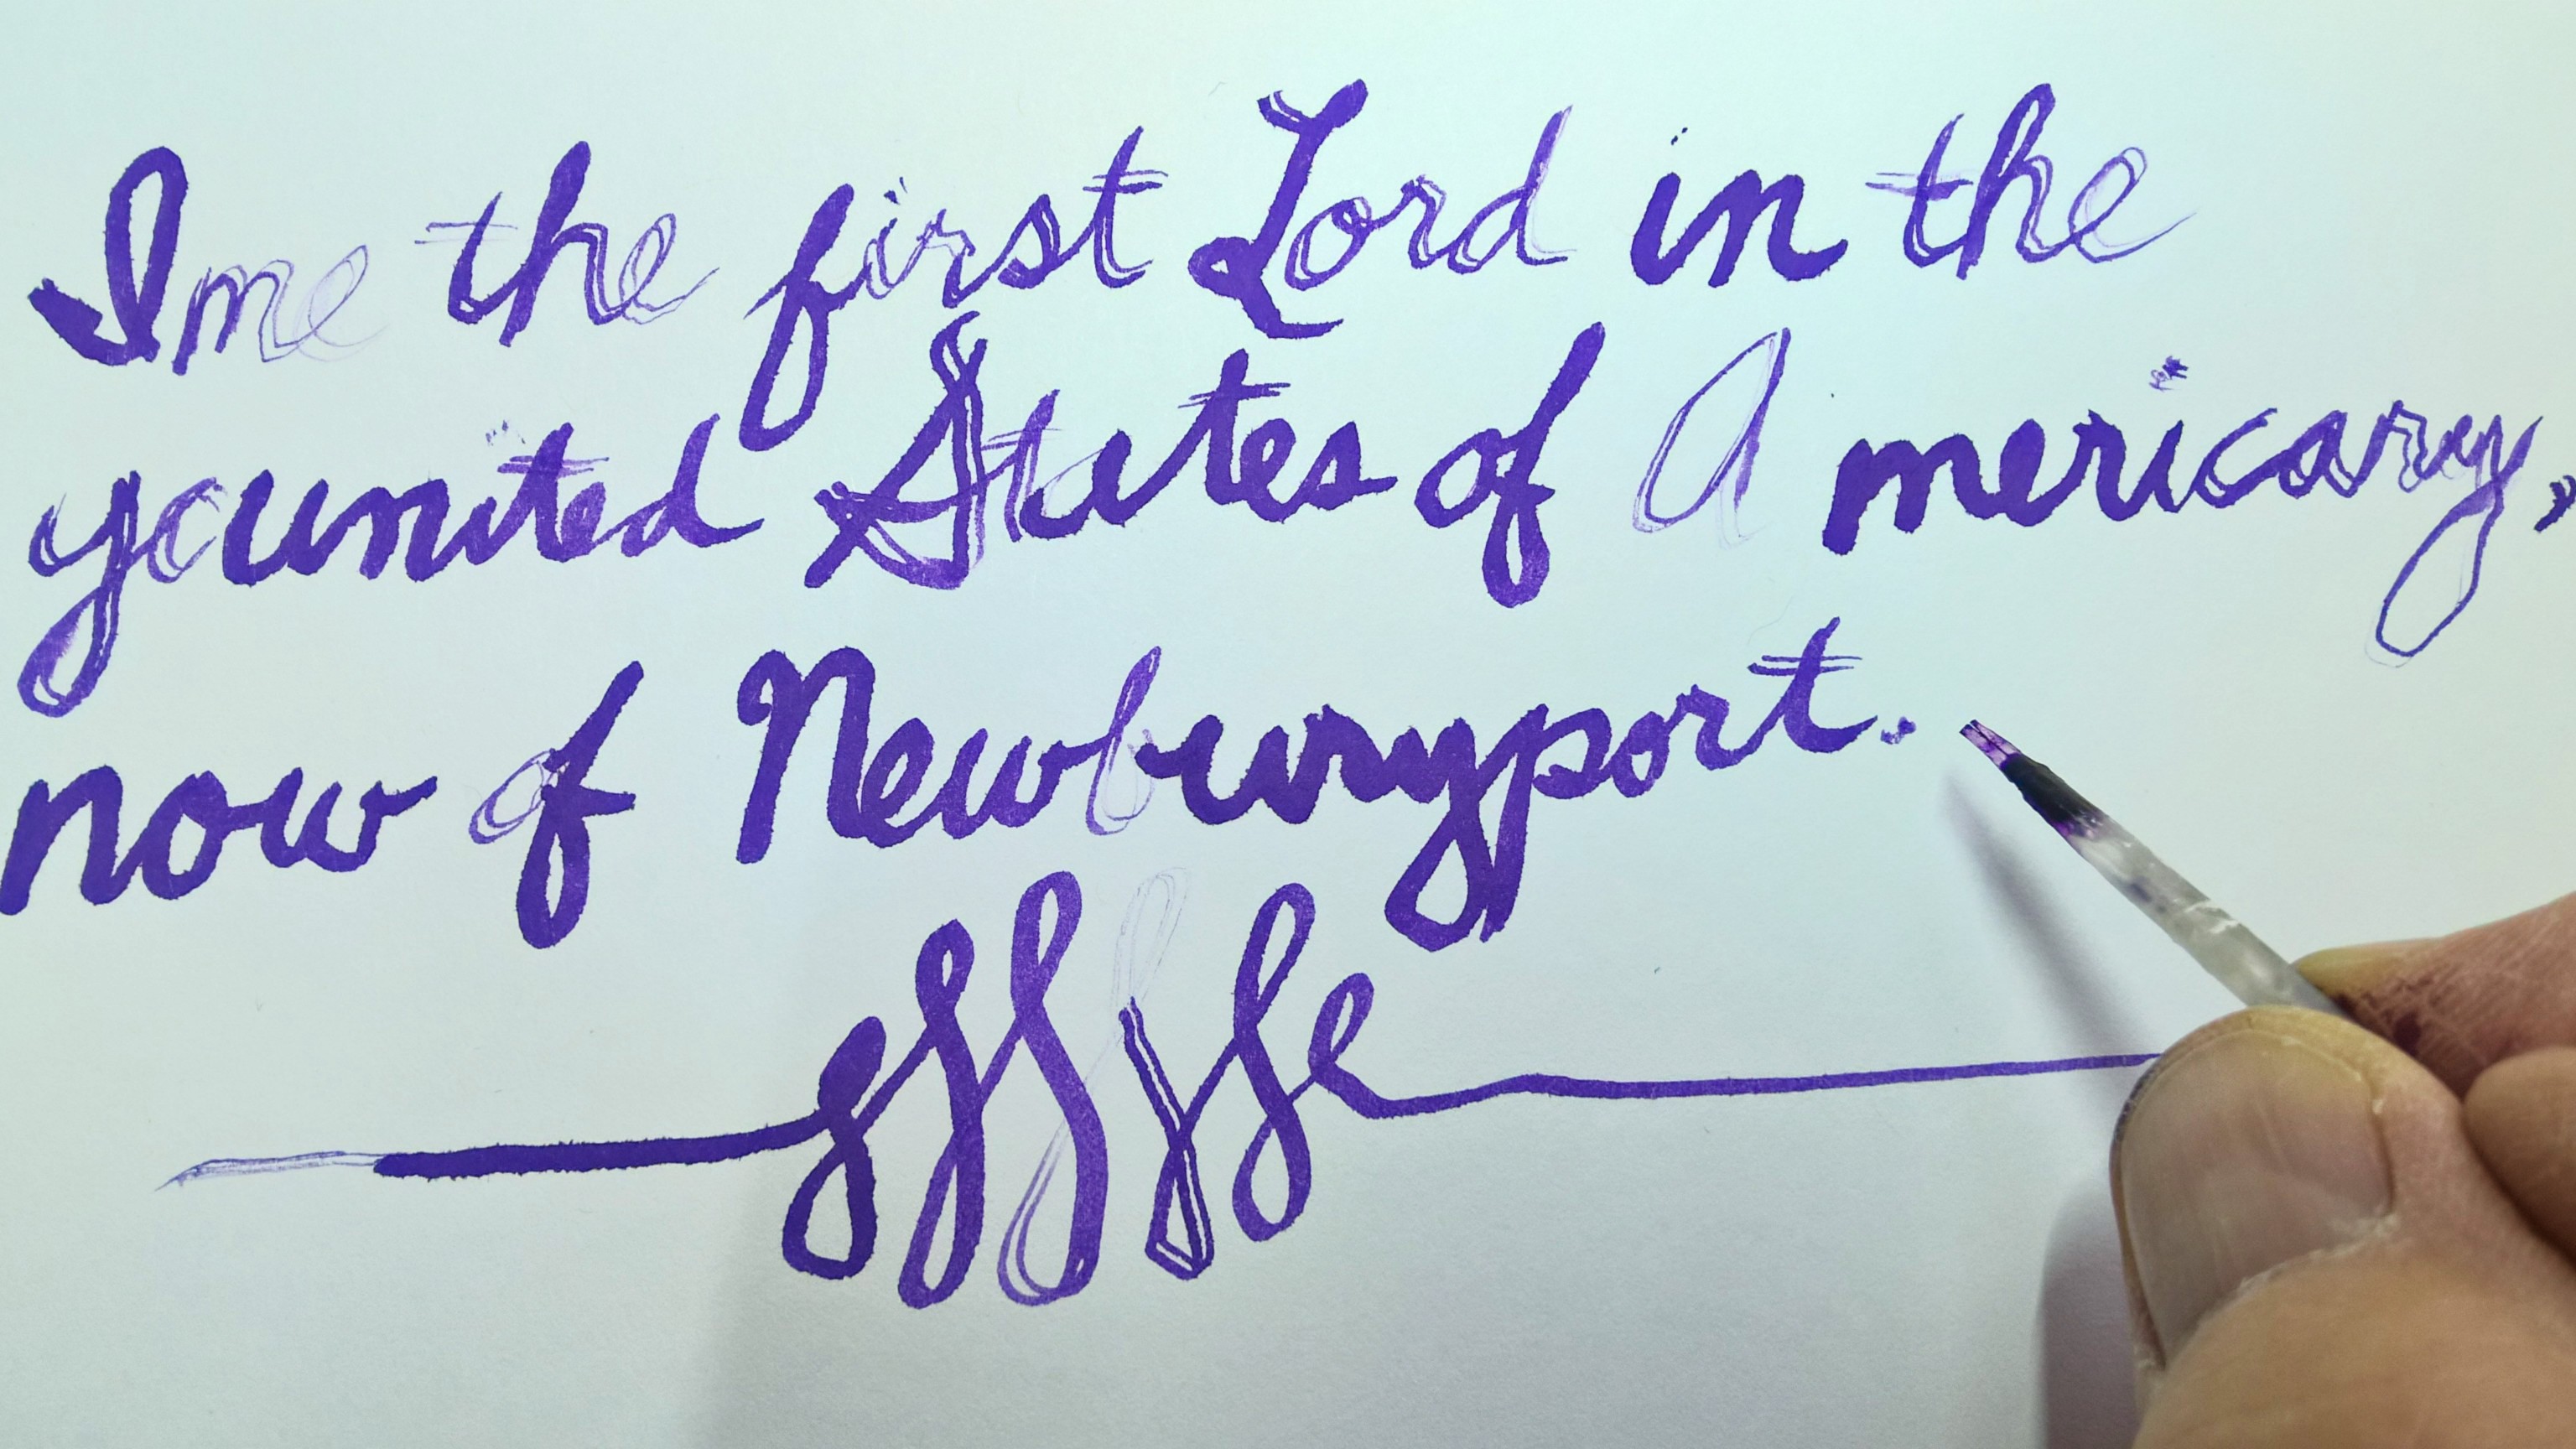 Ime the first Lord in the
younited States of Americary,
now of Newburyport.